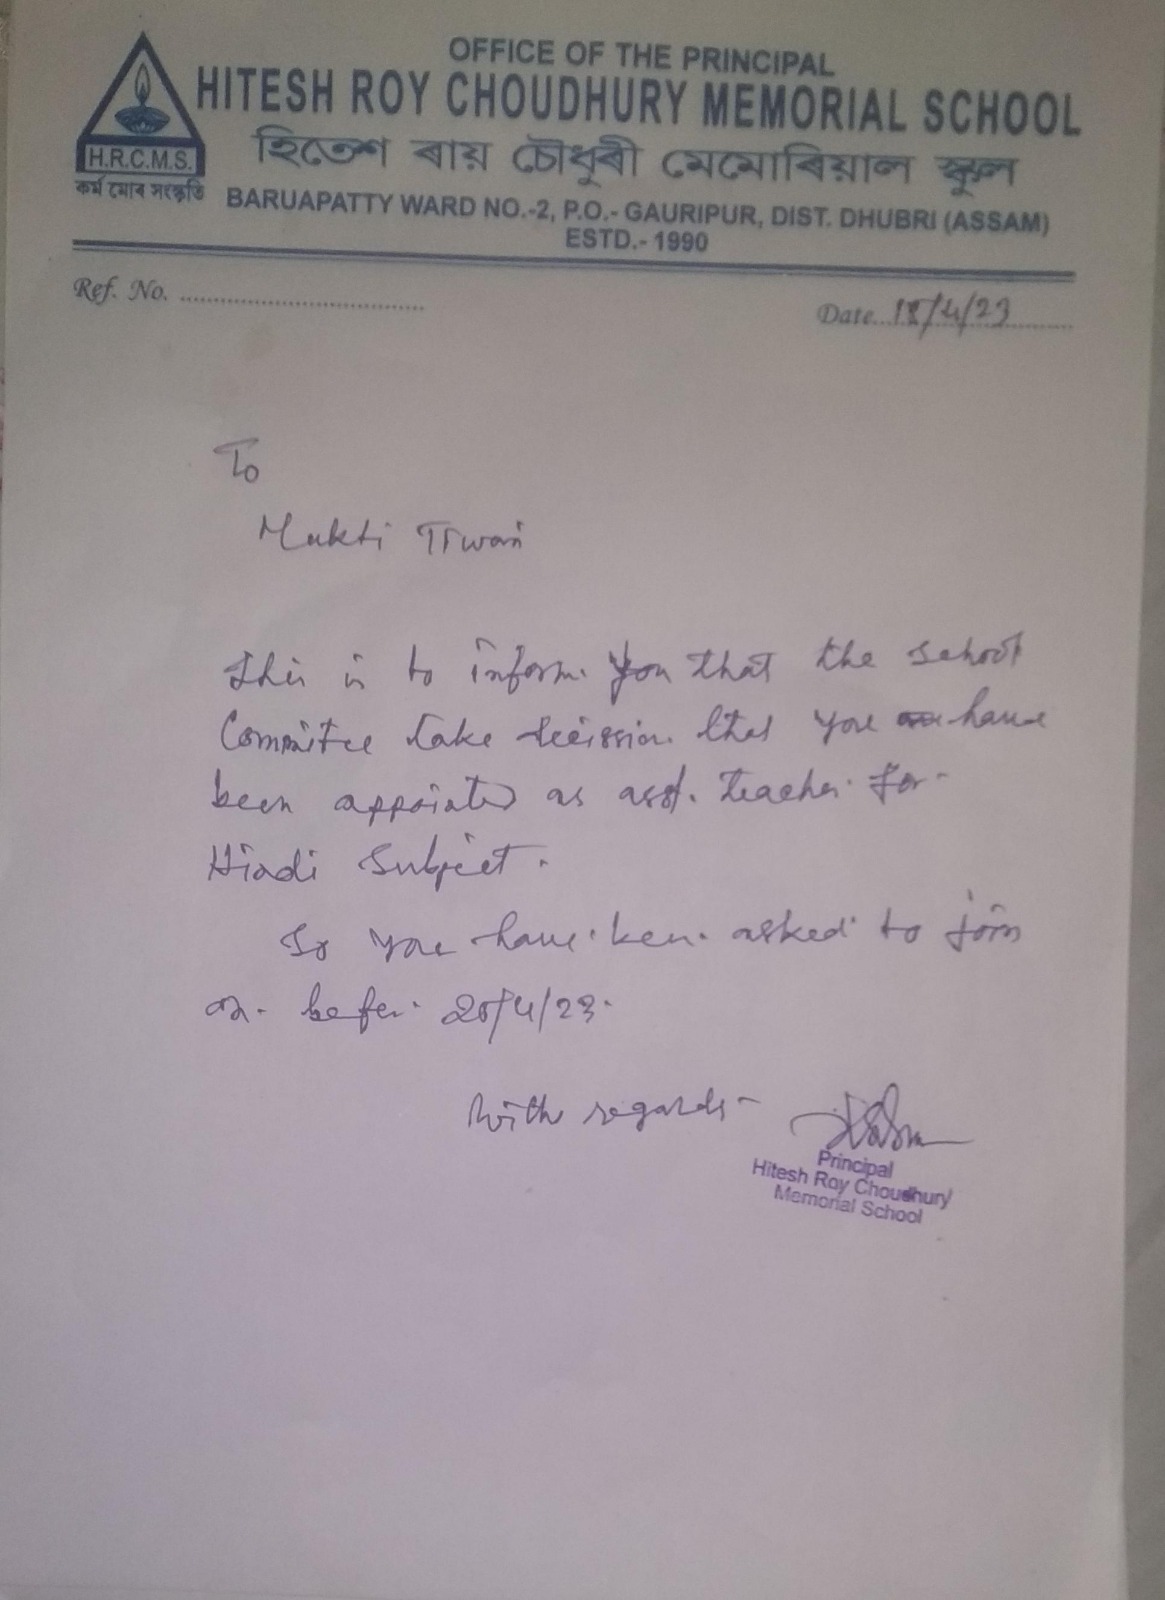 OFFICE OF THE PRINCIPAL
HITESH ROY CHOUDHURY MEMORIAL SCHOOL
হিতেশ ৰায় চৌধুৰী মেমোৰিয়াল স্কুল
H.R.C.M.S.
কৰ্ম মোৰ সংস্কৃতি
BARUAPATTY WARD NO.-2, P.O.- GAURIPUR, DIST. DHUBRI (ASSAM)
ESTD.- 1990
Ref. No. ..............................
Date 18/4/23
To
Mukti Tiwari
This is to inform you that the school
Committee take decission that you have
been appointed as asst. teacher for
Hindi Subject.
So you have been asked to join
on befor 20/4/23.
With regards-
Principal
Hitesh Roy Choudhury
Memorial School